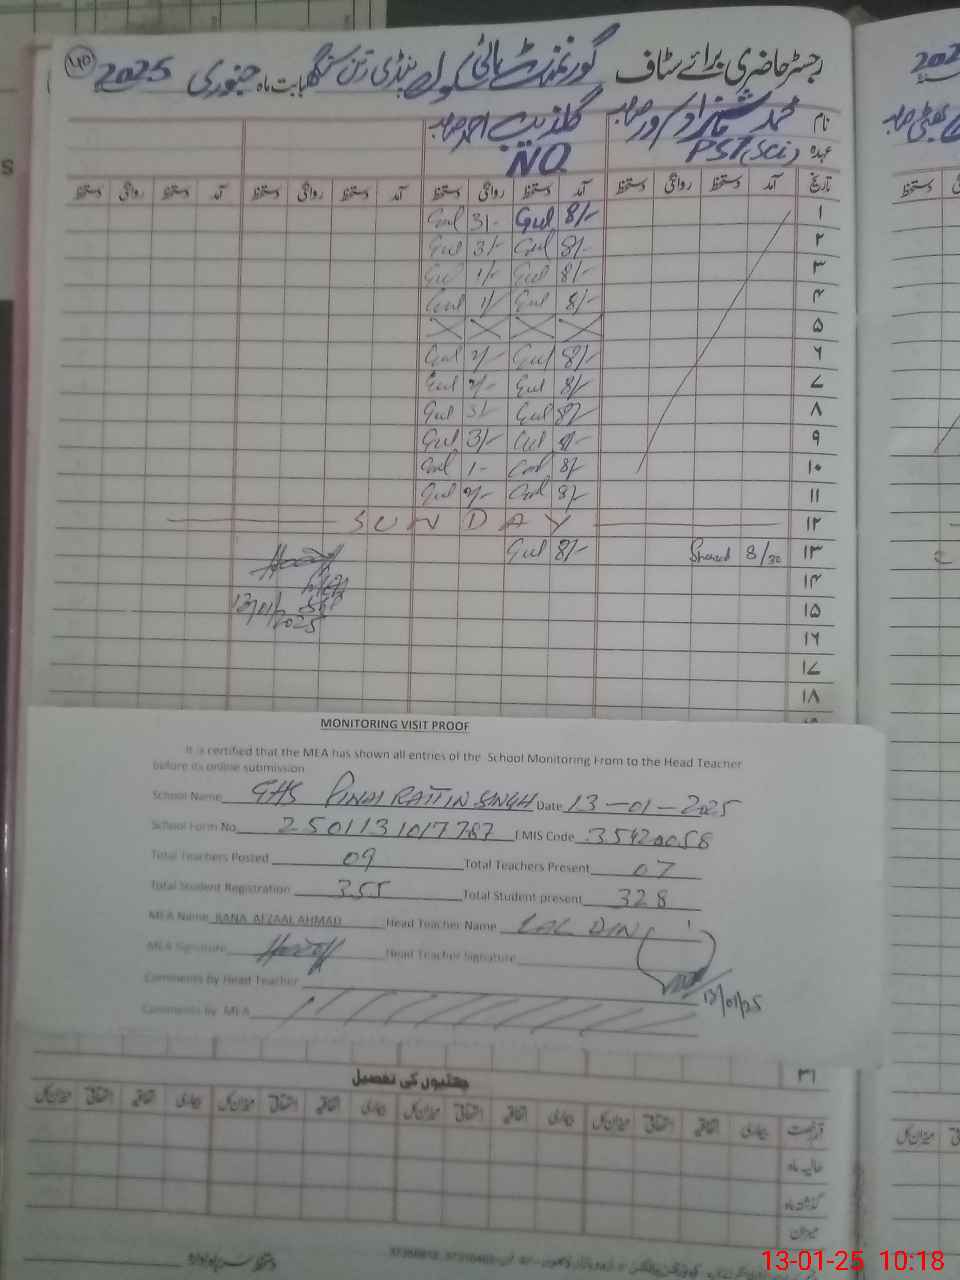 40 رجسٹر حاضری برائے سٹاف گورنمنٹ ہائی سکول پنڈی رتن سنگھ بابت ماہ جنوری 2025
نام محمد شہزاد سرور صاحب گلذیب احمد صاحب
عہدہ PST(Sci) NQ
تاریخ آمد دستخط روانگی دستخط آمد دستخط روانگی دستخط آمد دستخط روانگی دستخط
۱ 8/- Gul 3/- Gul
۲ 8/- Gul 3/- Gul
۳ 8/- Gul 1/- Gul
۴ 8/- Gul 1/- Gul
۵
۶ 8/- Gul 2/- Gul
۷ 8/- Gul 2/- Gul
۸ 8/- Gul 3/- Gul
۹ 8/- Gul 3/- Gul
۱۰ 8/- Gul 1- Gul
۱۱ 8/- Gul 2/- Gul
۱۲ SUNDAY
۱۳ 8/30 8/- Gul
۱۴
۱۵ 13/01/2025
۱۶
۱۷
۱۸
MONITORING VISIT PROOF
It is certified that the MEA has shown all entries of the School Monitoring From to the Head Teacher
before its online submission
School Name GHS PINDI RATTIN SINGH Date 13-01-2025
School Form No 2501131017787 EMIS Code 35420058
Total Teachers Posted 09 Total Teachers Present 07
Total Student Registration 355 Total Student present 328
MEA Name RANA AFZAAL AHMAD Head Teacher Name LAL DIN
MEA Signature Head Teacher Signature
13/01/25
Comments by Head Teacher
Comments by MEA
۳۱
چھٹیوں کی تفصیل
بیماری اتفاقیہ استحقاقی میزان کل بیماری اتفاقیہ استحقاقی میزان کل بیماری اتفاقیہ استحقاقی میزان کل بیماری اتفاقیہ استحقاقی میزان کل
حالیہ ماہ
گذشتہ ماہ
میزان
13-01-25 10:18